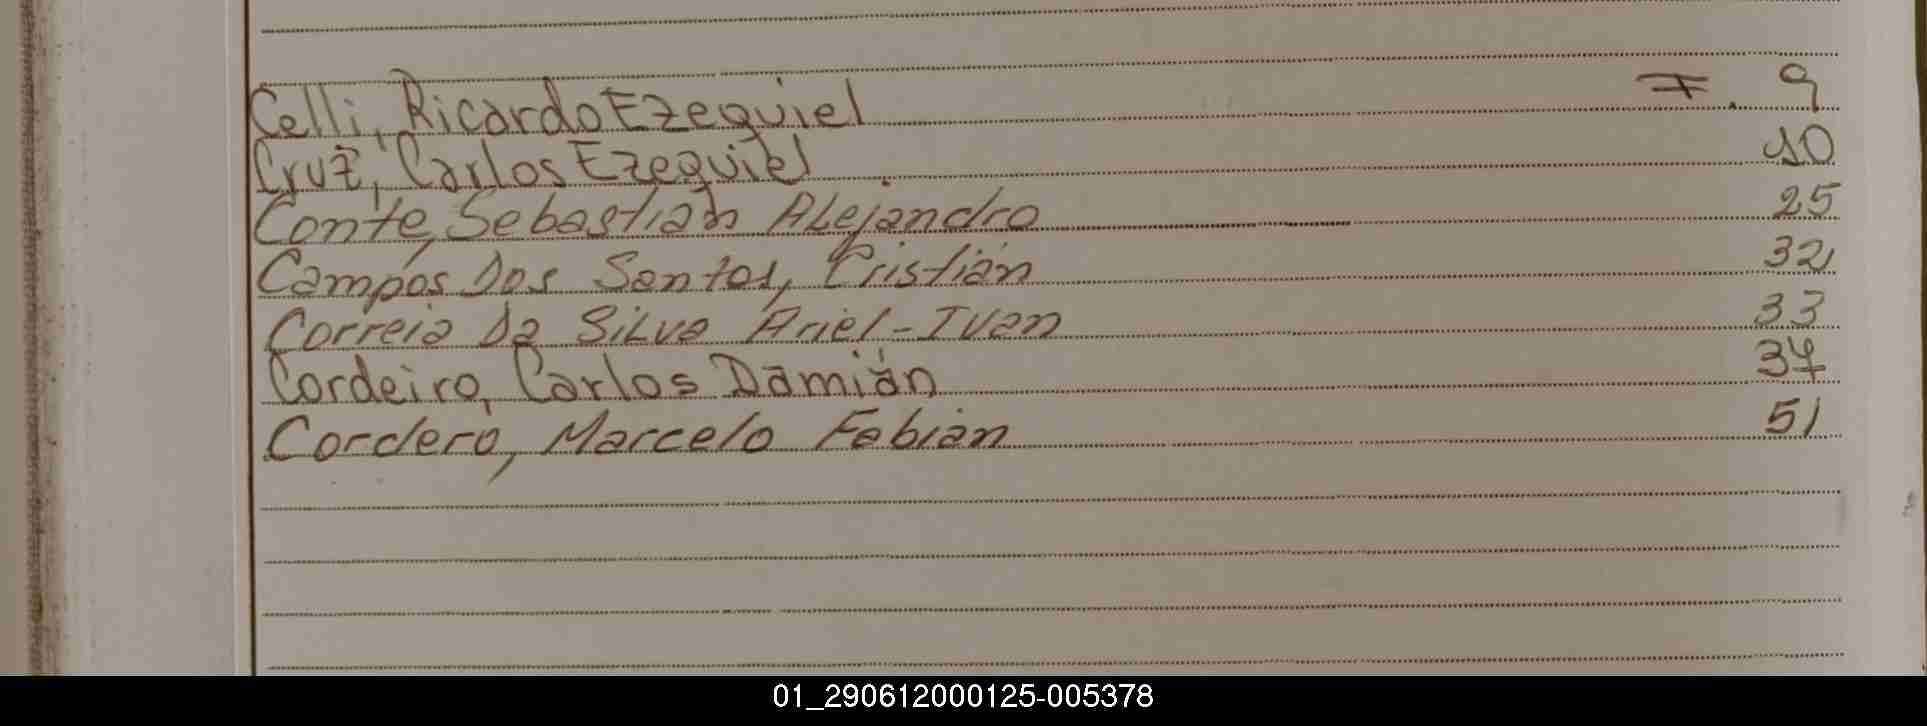 Celli, Ricardo Ezequiel F. 9
Cruz, Carlos Ezequiel 10
Conte, Sebastián Alejandro 25
Campos Dos Santos, Cristián 32
Correia Da Silva Ariel-Ivan 33
Cordeiro, Carlos Damián 34
Cordero, Marcelo Fabián 51
01_290612000125-005378